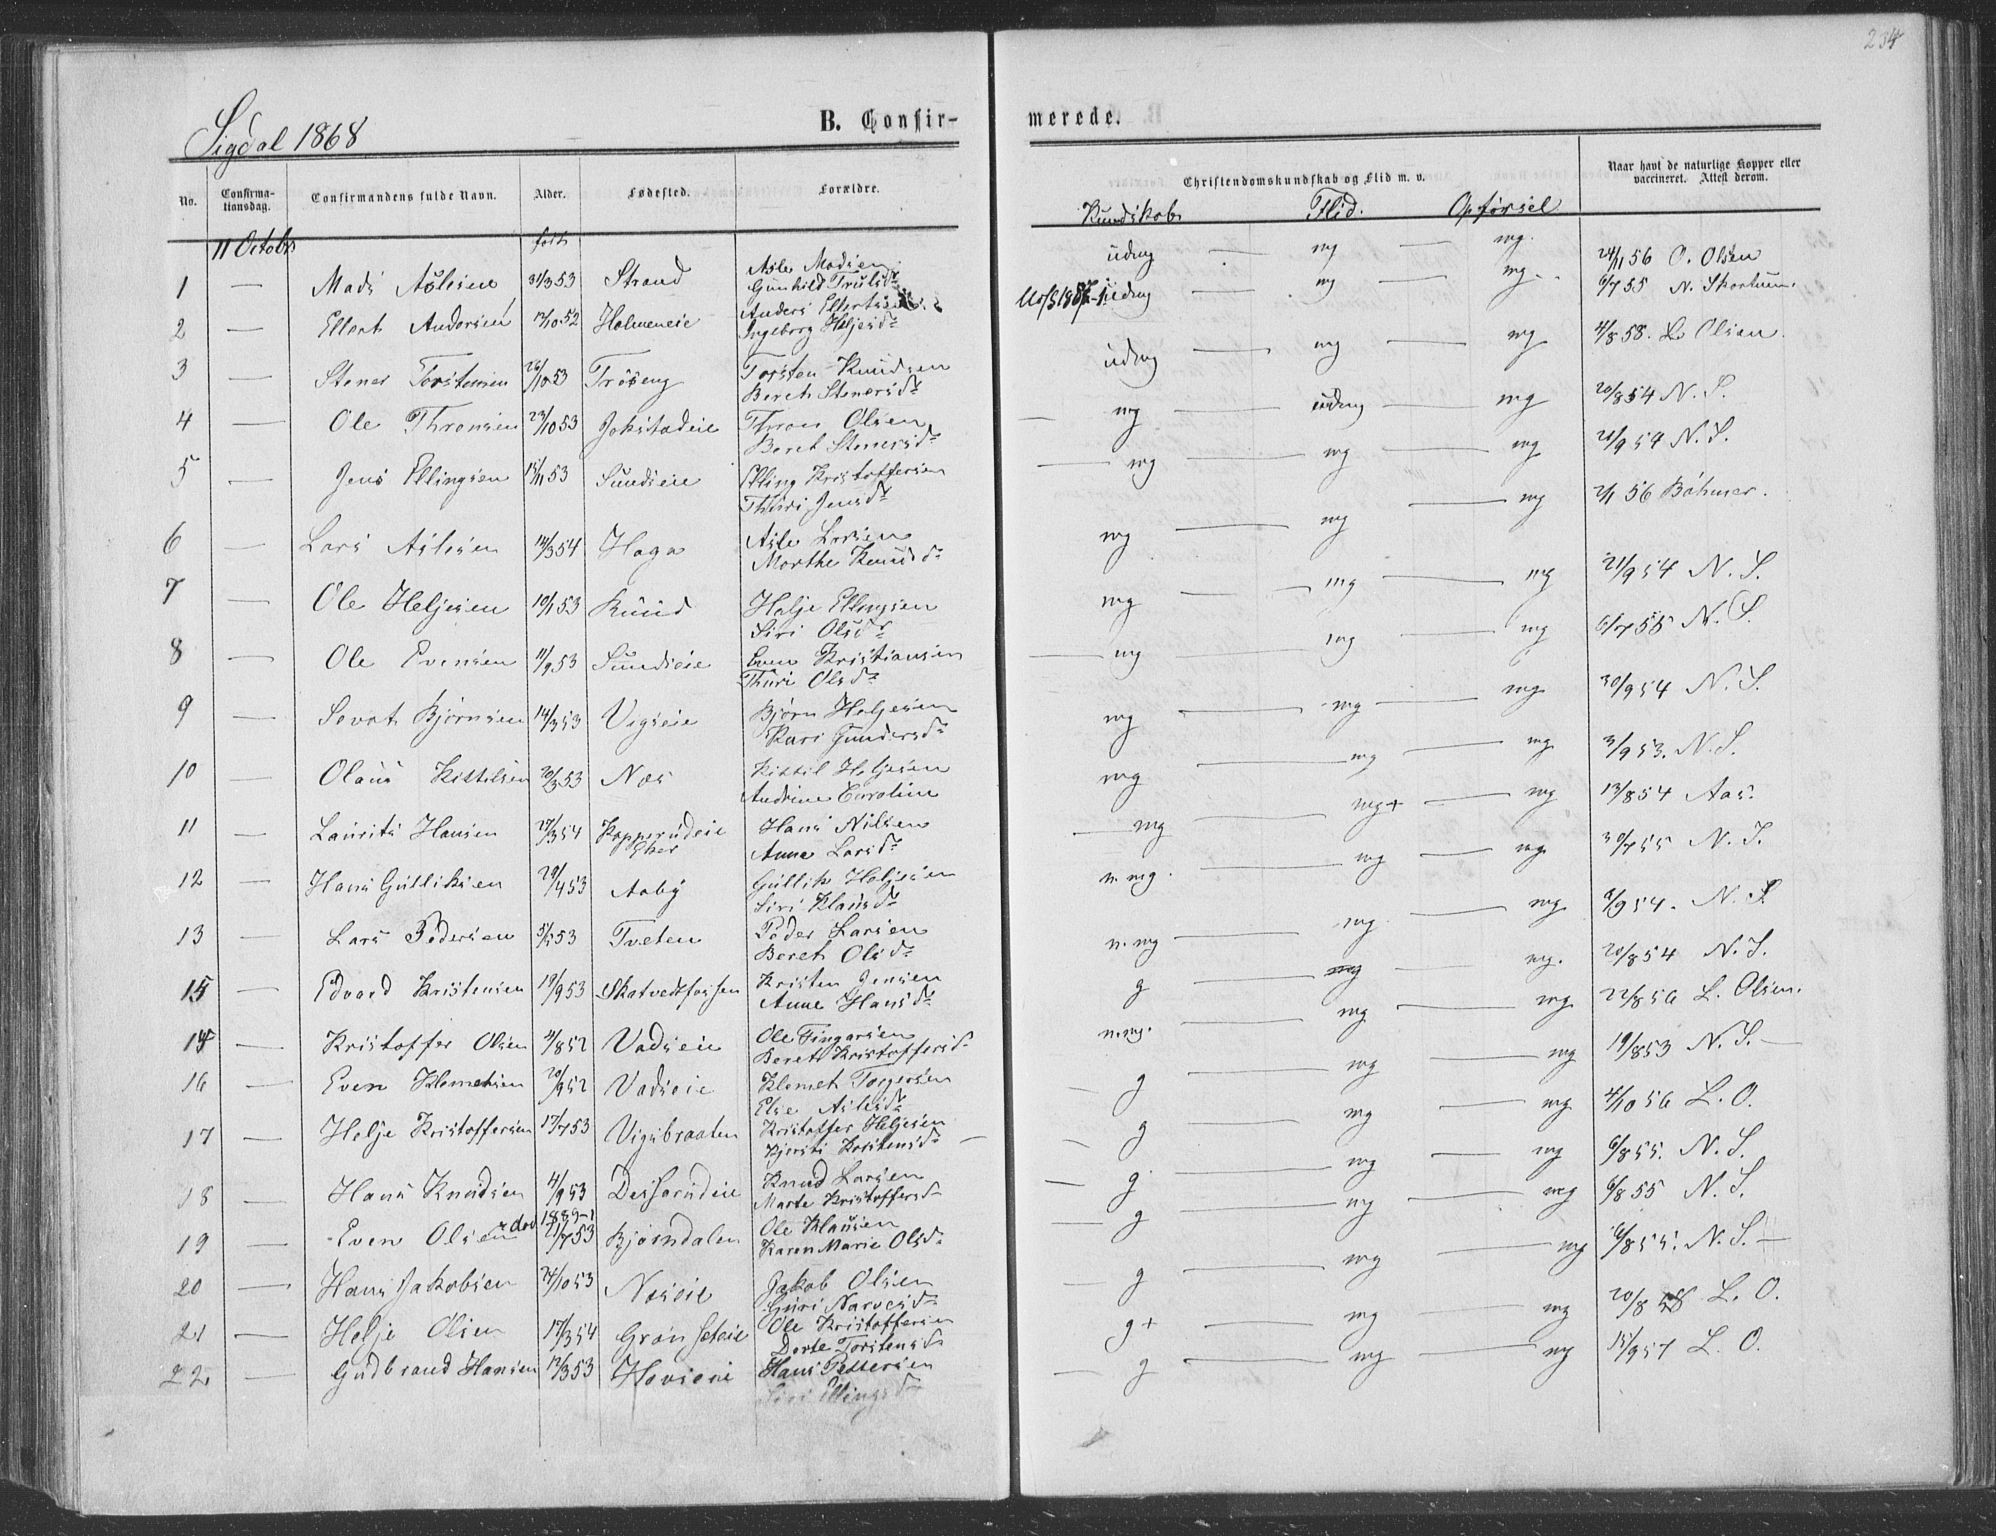 234
Sigdal 1868
B. Confir-
merede.
No. Confirma-tionsdag. Confirmandens fulde Navn. Alder. Fødested. Forældre. Christendomskundskab og Flid m. v. Naar havt de naturlige Kopper eller vaccineret. Attest derom.
Kundskab. Flid. Opførsel
11 Octobr født
1 — Mads Aslesen 31/3 53 Strand Asle Madsen Gunhild Trulsdr udmg — mg — mg. 24/11 56 O. Olsen
2 — Ellert Andersen 12/10 52 Holmeneie Anders Ellertsen Ingeborg Heljesdr udmg mg mg 6/7 55 N.
3 — Stener Torstensen 26/10 53 Trøseng Torsten Knudsen Beret Stenersdr udmg — mg — mg 4/8 58. L. Olsen.
4 — Ole Thronsen 23/10 53 Jokstadeie Thron Olsen Beret Stenersdr — mg — udmg — mg 20/8 54 N. S.
5 — Jens Ellingsen 15/11 53 Sundseie Elling Kristoffersen Thuri Jensdr — mg — mg — mg 21/9 54 N. S.
6 — Lars Aslesen 14/3 54 Haga Asle Larsen Marthe Knudsdr mg — mg — mg 2/1 56 Böhmer.
7 — Ole Heljesen 10/1 53 Ruud Helje Ellingsen Siri Olsdr mg — mg — mg 21/9 54 N. S.
8 — Ole Evensen 11/9 53 Sundseie Even Kristiansen Thuri Olsdr — mg mg — mg 6/7 55 N. S.
9 — Sevat Bjørnsen 14/3 53 Vegseie Bjørn Heljesen Kari Gundersdr mg — mg — mg 30/9 54 N. S.
10 — Olaus Kittilsen 20/3 53 Næs Kittil Heljesen Andrine Caroline mg — mg — mg 3/9 53. N. S.
11 — Laurits Hansen 27/3 54 Kopperudeie Eker Hans Nilsen Anne Larsdr — mg — mg+ — mg 13/8 54 Aas.
12 — Hans Gulliksen 29/4 53 Aaby Gullik Heljesen Siri Klausdr n. mg. — mg — mg 30/7 55 N. S.
13 — Lars Pedersen 5/5 53 Tveten Peder Larsen Beret Olsdr n. mg — mg — mg 2/9 54. N. S.
15 — Edvard Kristensen 19/9 53 Skatvedtfossen Kristen Jensen Anne Hansdr g — mg — mg. 20/8 54 N. S.
14 — Kristoffer Olsen 4/8 52 Vadseie Ole Fingarsen Beret Kristoffersdr n. mg. — mg — mg 22/8 56 L. Olsen.
16 — Even Klemetsen 20/9 52 Vadseie Klemet Torgersen Else Aslesdr — g — mg — mg 19/8 53 N. S. —
17 — Helje Kristoffersen 17/7 53 Vigsbraaten Kristoffer Heljesen Kjersti Korstensdr — g — mg — mg 4/10 56 L. O.
18 — Hans Knudsen 4/9 53 Knud Larsen Marte Kristoffersdr — g — mg — mg 6/8 55. N. S.
19 — Even Olsen død 1889 21/7 53 Bjørndalen Ole Klausen Karen Marie Olsdr — g — mg — mg 6/8 55 N. S.
20 — Hans Jakobsen 24/10 53 Næseie Jakob Olsen Guri Narvesdr — g — mg — mg 6/8 55. N. S. —
21 — Helje Olsen 17/3 54 Grønseteie Ole Kristoffersen Dorte Torstensdr g+ — mg — mg 20/8 58 L. O.
22. — Gudbrand Hansen 12/3 53 Hovseie Hans Pettersen Siri Ellingsdr g — mg — mg 15/9 57 L. O.